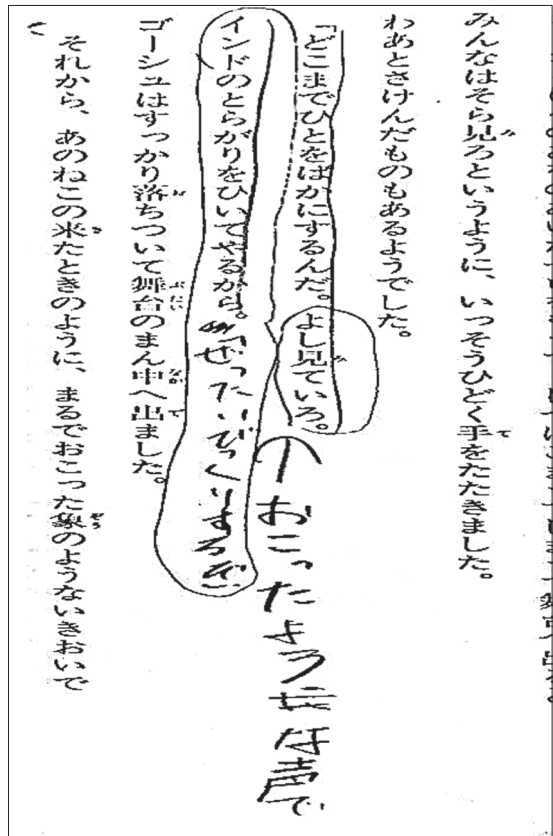 みんなはそら見ろというように、いっそうひどく手をたたきました。
わあとさけんだものもあるようでした。
「どこまでひとをばかにするんだ。よし見ていろ。
おこったような声で
インドのとらがりをひいてやるから。ぜったいびっくりするぞ
ゴーシュはすっかり落ちついて舞台のまん中へ出ました。
それから、あのねこの来たときのように、まるでおこった象のようないきおいで